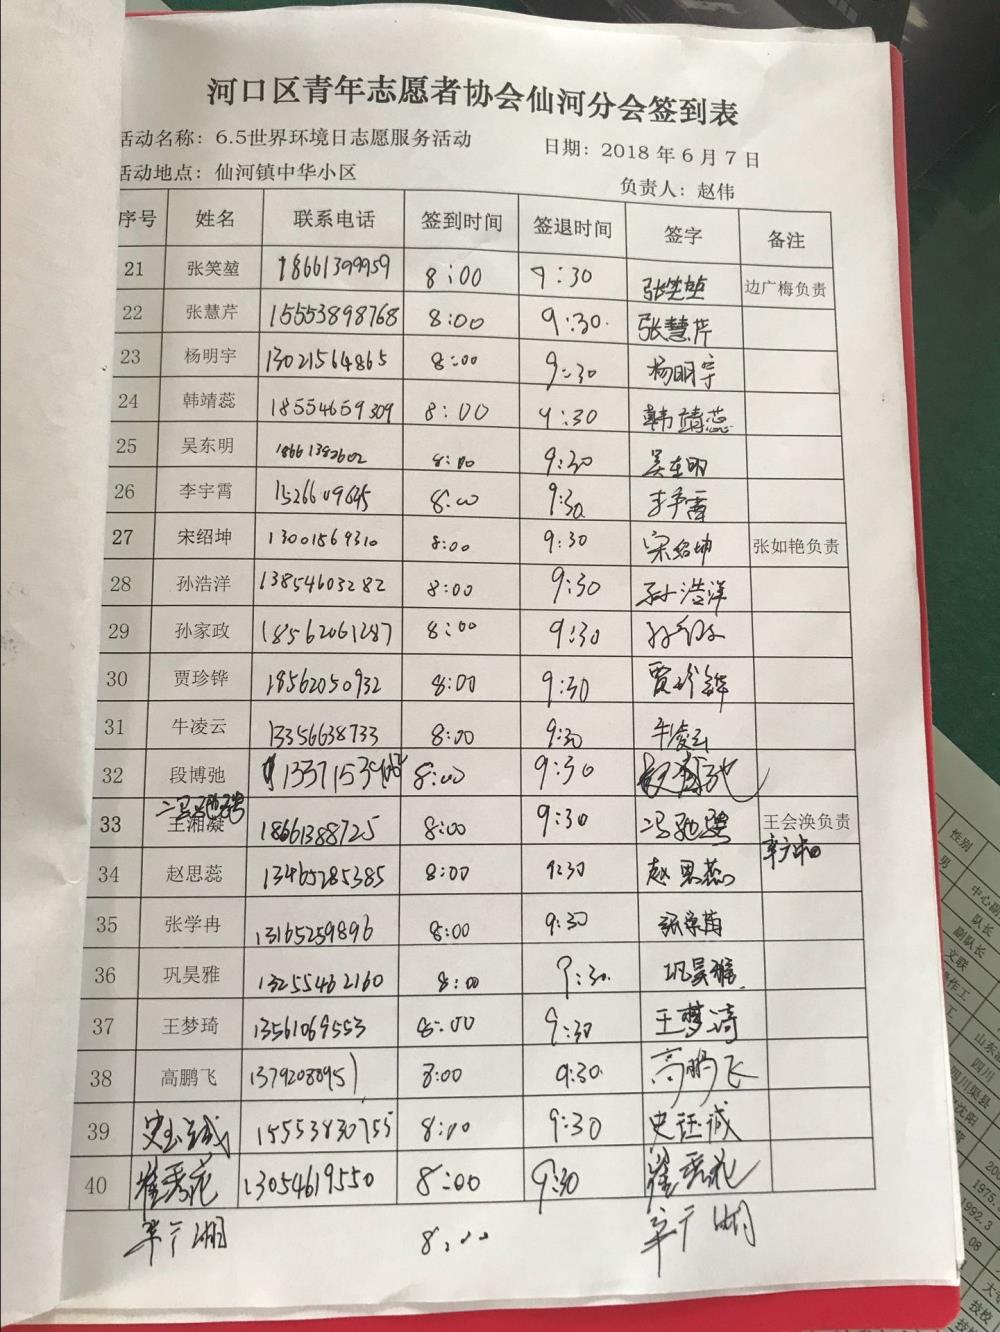 河口区青年志愿者协会仙河分会签到表
活动名称：6.5世界环境日志愿服务活动 日期：2018年6月7日
活动地点：仙河镇中华小区 负责人：赵伟
序号 姓名 联系电话 签到时间 签退时间 签字 备注
21 张笑堃 18661399959 8:00 9:30 张笑堃 边广梅负责
22 张慧芹 15553898768 8:00 9:30. 张慧芹
23 杨明宇 13021564865 8:00 9:30 杨明宇
24 韩靖蕊 18554659309 8:00 9:30 韩靖蕊
25 吴东明 8:00 9:30 吴东明
26 李宇霄 8:00 9:30 李宇霄
27 宋绍坤 13001569310 8:00 9:30 宋绍坤 张如艳负责
28 孙浩洋 13854603282 8:00 9:30 孙浩洋
29 孙家政 18562061287 8:00 9:30
30 贾珍铧 18562050932 8:00 9:30 贾珍铧
31 牛凌云 13356638733 8:00 9:30 牛凌云
32 段博弛 8:00 9:30 段博弛
冯驰骋
33 王湘凝 18661388725 8:00 9:30 冯驰骋 王会涣负责
辛广湖
34 赵思蕊 13465285385 8:00 9:30 赵思蕊
35 张学冉 13165259896 8:00 9:30 张学冉
36 巩昊雅 13255462160 8:00 9:30. 巩昊雅
37 王梦琦 13561069553 8:00 9:30 王梦琦
38 高鹏飞 13792088951 8:00 9:30. 高鹏飞
39 史钰诚 15553830755 8:00 9:30 史钰诚
40 崔秀花 13054619550 8:00 9:30 崔秀花
辛广湖 8:00 辛广湖
性别
男
中心副
队长
副队长
文联
工
山东
四川
四川渠县
沈阳
1975.
1992.3
08
技校
技校